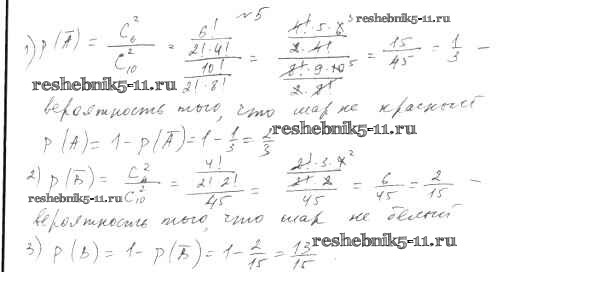 №5
reshebnik5-11.ru
1) p(Ā) = C₆² / C₁₀² = (6! / (2!·4!)) / (10! / (2!·8!)) = (4!·5·6³ / (2·4!)) / (8!·9·10⁵ / (2·8!)) = 15/45 = 1/3 –
reshebnik5-11.ru
вероятность того, что шар не красный
p(A) = 1 - p(Ā) = 1 - 1/3 = 2/3
reshebnik5-11.ru
2) p(B̄) = C₄² / C₁₀² = (4! / (2! 2!)) / 45 = (2!·3·4² / (2! 2)) / 45 = 6/45 = 2/15 –
reshebnik5-11.ru
вероятность того, что шар не белый
3) p(B) = 1 - p(B̄) = 1 - 2/15 = 13/15
reshebnik5-11.ru